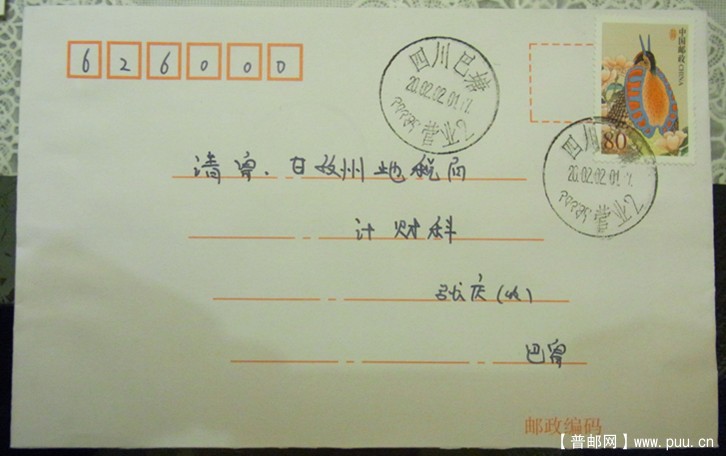 626000
四川巴塘
2002.02.01
营业2
中国邮政 CHINA
80
四川
2002.02.01
营业2
请寄.甘孜州地税局
计财科
张庆(收)
巴寄
邮政编码
【普邮网】www.puu.cn